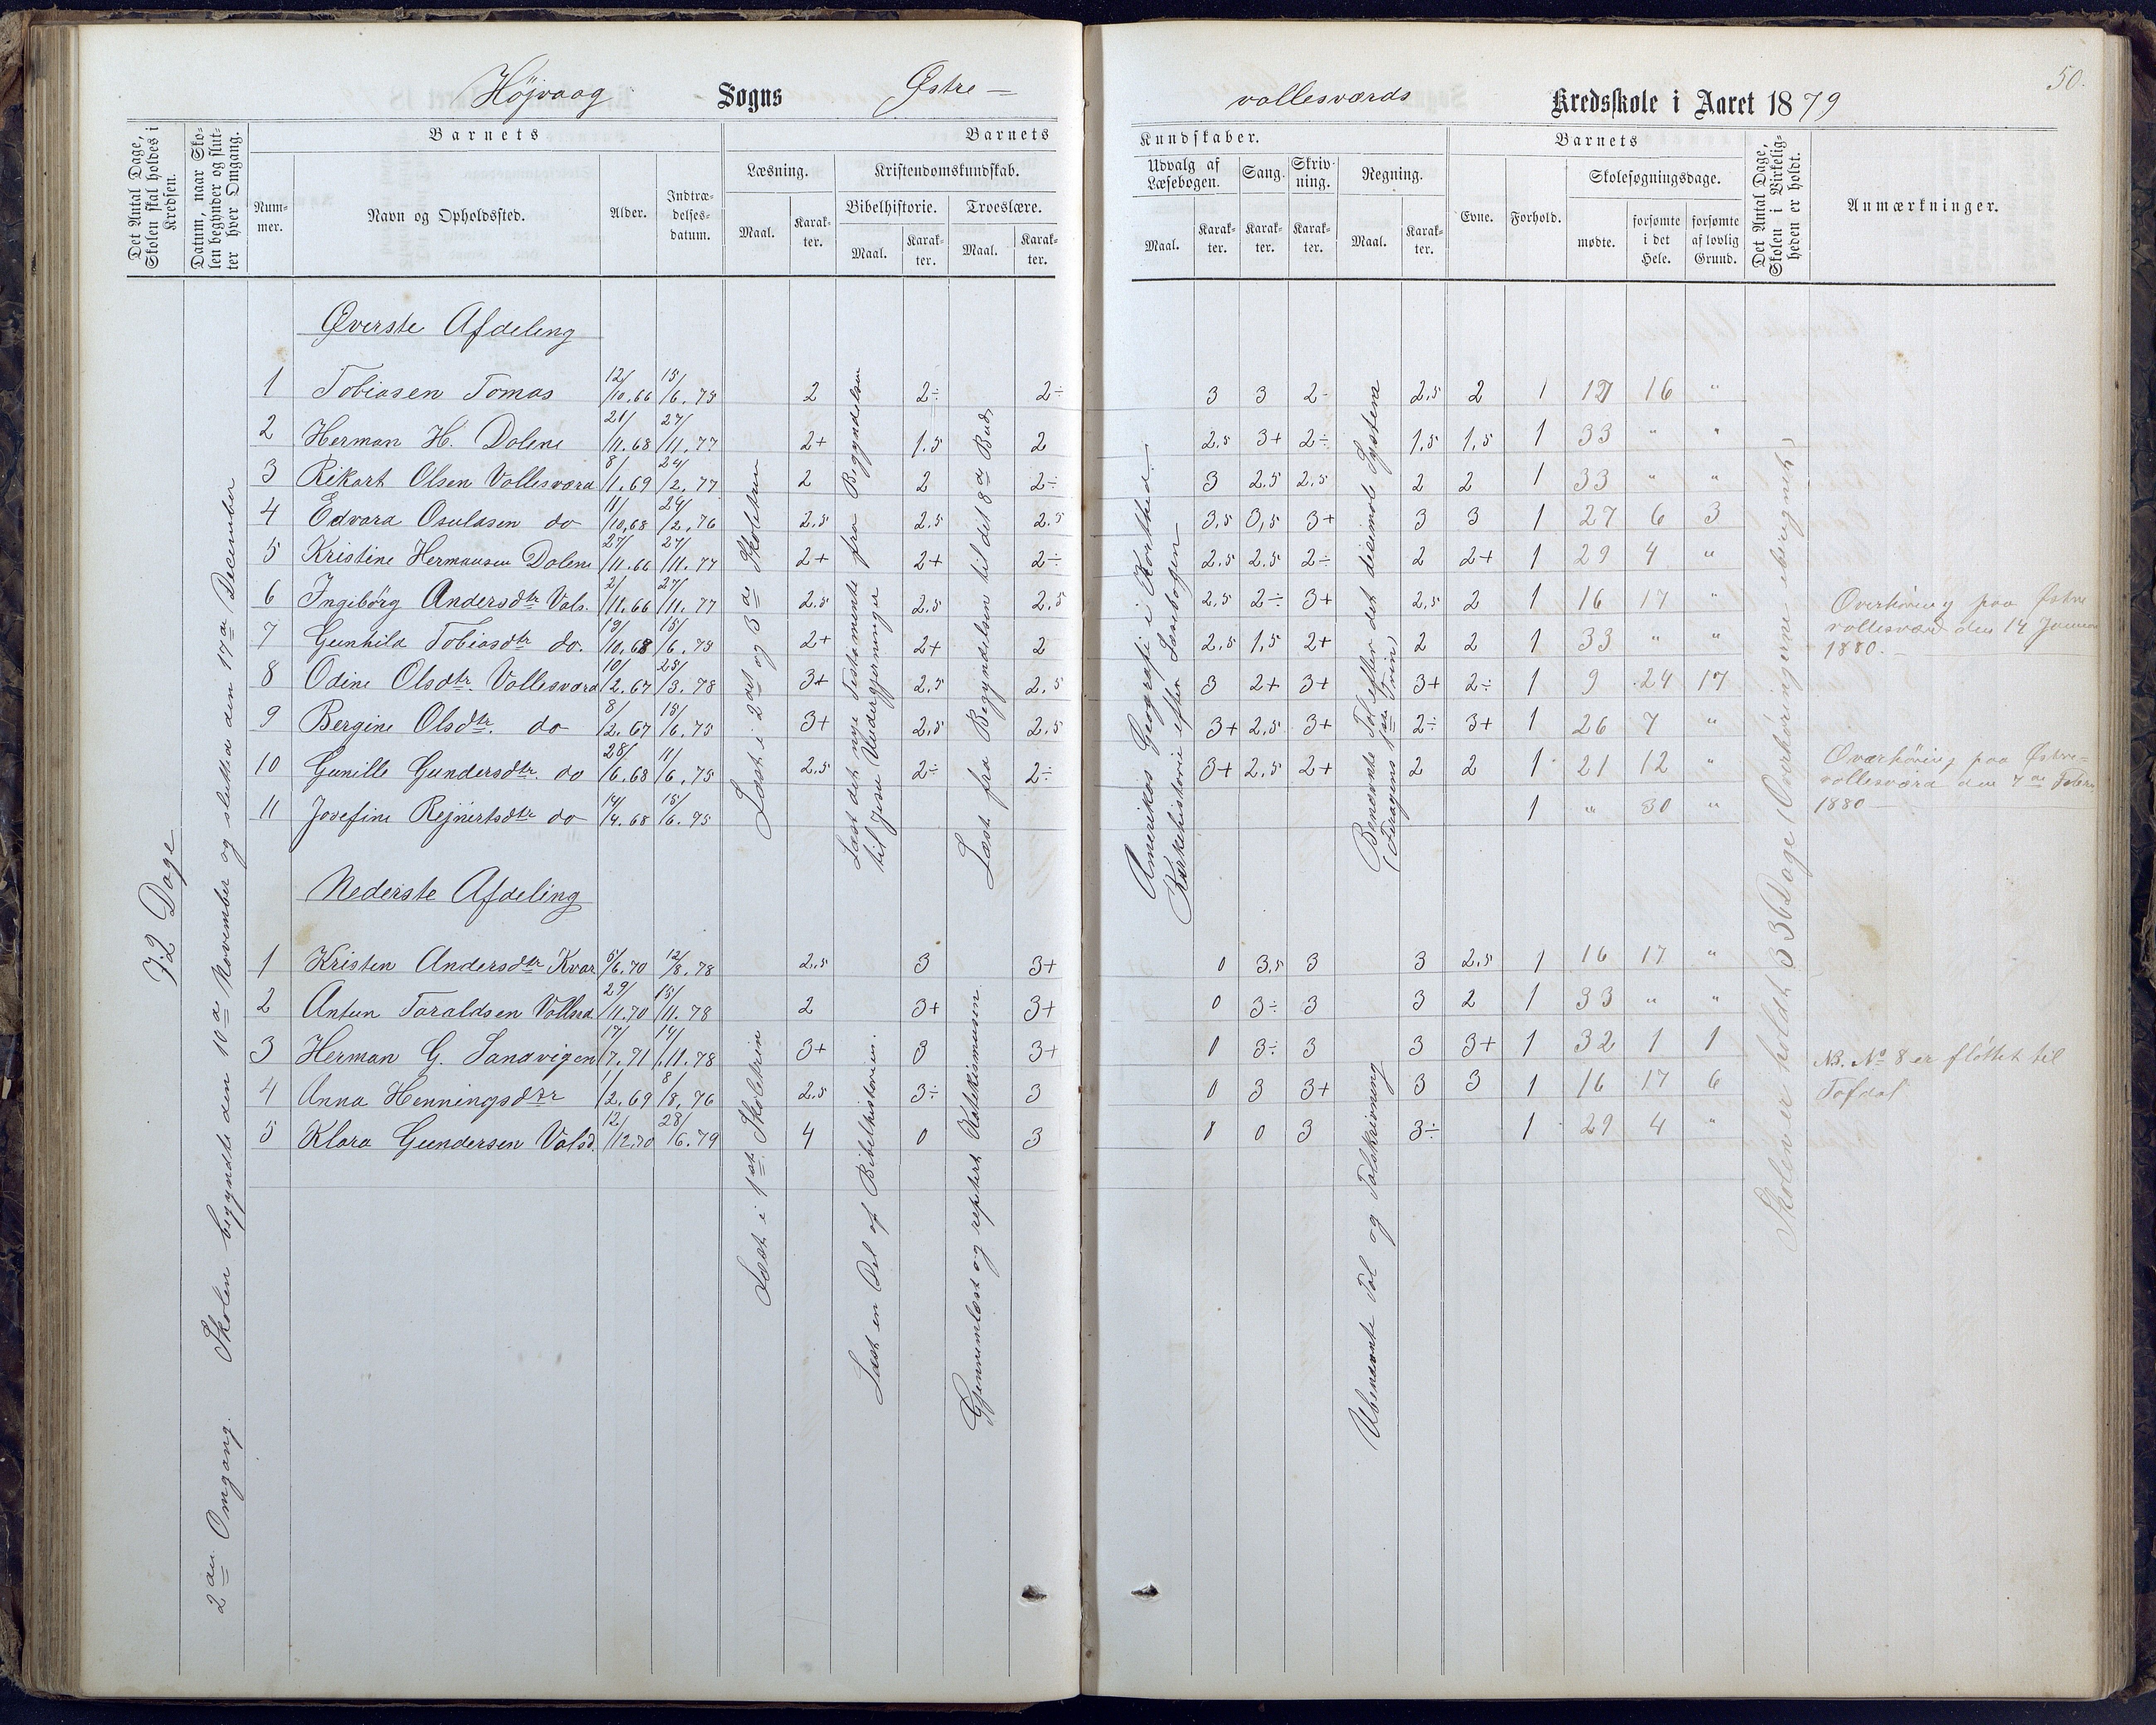 50.
Højvaag Sogns Østre –
vollesværds Kredsskole i Aaret 1879
Det Antal Dage, Skolen skal holdes i Kredsen.
Datum, naar Skolen begynder og slutter hver Omgang.
Barnets
Nummer.
Navn og Opholdssted.
Alder.
Indtrædelsesdatum.
Barnets
Læsning.
Maal.
Karakter.
Kristendomskundskab.
Bibelhistorie.
Maal.
Karakter.
Troeslære.
Maal.
Karakter.
Kundskaber.
Udvalg af Læsebogen.
Maal.
Karakter.
Sang.
Karakter.
Skrivning.
Karakter.
Regning.
Maal.
Karakter.
Barnets
Evne.
Forhold.
Skolesøgningsdage.
mødte.
forsømte i det Hele.
forsømte af lovlig Grund.
Det Antal Dage, Skolen i Virkeligheden er holdt.
Anmærkninger.
72 Dage
2den Omgang. Skolen begyndte den 10de November og sluttede den 17de December
Øverste Afdeling
1 Tobiasen Tomas 12/10.66 15/6.75 2 2÷ 2÷ 3 3 2- 2,5 2 1 17 16 "
2 Herman H. Dolene 21/11.68 27/11.77 2+ 1.5 2 2.5 3+ 2÷ 1,5 1,5 1 33 " "
3 Rikart Olsen Vollesværd 8/1.69 24/2.77 2 2 2÷ 3 2.5 2.5 2 2 1 33 " "
4 Edvard Osulasen do 18/10.68 24/2.76 2.5 2.5 2.5 3.5 3,5 3+ 3 3 1 27 6 3
5 Kristine Hermansen Dolene 27/11.66 27/11.77 2+ 2+ 2÷ 2.5 2.5 2÷ 2 2+ 1 29 4 "
6 Ingibørg Andersdtr Vols. 2/11.66 27/11.77 2.5 2.5 2,5 2,5 2÷ 3+ 2,5 2 1 16 17 "
7 Gunhild Tobiasdtr do. 19/10.68 15/6.75 2+ 2+ 2 2.5 1,5 2+ 2 2 1 33 " "
8 Odine Olsdtr. Vollesværd 10/2.67 25/3.78 3+ 2,5 2,5 3 2+ 3+ 3+ 2÷ 1 9 24 17
9 Bergine Olsdtr. do 8/2.67 15/6.75 3+ 2,5 2,5 3+ 2,5 3+ 2÷ 3+ 1 26 7 "
10 Gunille Gundersdtr. do 28/6.68 11/6.75 2,5 2÷ 2÷ 3+ 2,5 2+ 2 2 1 21 12 "
11 Josefine Rejnertsdtr do 14/4.68 15/6.75 1 " 30 "
Læst i 2det og 3de Skoletrin
Læst det nye Testamente fra Begyndelsen til Jesu Undergjerninger
Læst fra Begyndelsen til det 8de Bud,
Amerikas Geografi i Korthed. Kirkehistorie efter Læsebogen
Benævnte Tal efter det desimale Systeme
Overhøring paa Østre
vollesværd den 14 Januar
1880. –
Overhøring paa Østre=
vollesværd den 7de Febru
1880 –
Nederste Afdeling
1 Kristen Andersdtr Kvar 5/6.70 12/8.78 2.5 3 3+ 0 3,5 3 3 2.5 1 16 17 "
2 Antun Taraldsen Vollsd. 29/11.70 15/11.78 2 3+ 3+ 0 3÷ 3 3 2 1 33 " "
3 Herman G. Sandvigen 17/7.71 14/11.78 3+ 3 3+ 0 3÷ 3 3 3+ 1 32 1 1
4 Anna Henningsdtr 1/2.69 8/8.76 2.5 3÷ 3 0 3 3+ 3 3 1 16 17 6
5 Klara Gundersen Volsd. 12/12.70 28/6.79 4 0 3 0 0 3 3÷ 1 29 4 "
Læst i 1ste Skoletrin
Læst en Del af Bibelhistorien.
Gjennemlæst og repetert Katekismusen
Ubenævnte Tal og Talskrivning
Skolen er holdt 33 Dage (Overhøringerne iberegnet)
NB. No 8 er fløttet til
Tofdal